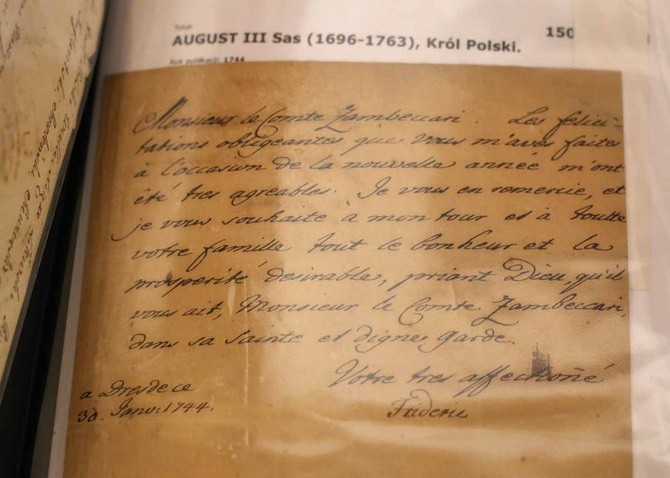 AUGUST III Sas (1696-1763), Król Polski.
150
Rok publikacji: 1744
Monsieur le Comte Zambeccari. Les felici-
tations obligeantes que vous m'avés faites
à l'occasion de la nouvelle année m'ont
été tres agreables. Je vous en remercie, et
je vous souhaite à mon tour et à toutte
votre famille tout le bonheur et la
prosperité desirable, priant Dieu, qu'il
vous ait, Monsieur le Comte Zambeccari,
dans sa sainte et digne garde.
Votre tres affectioñé
a Dresde ce
30. Janv. 1744.